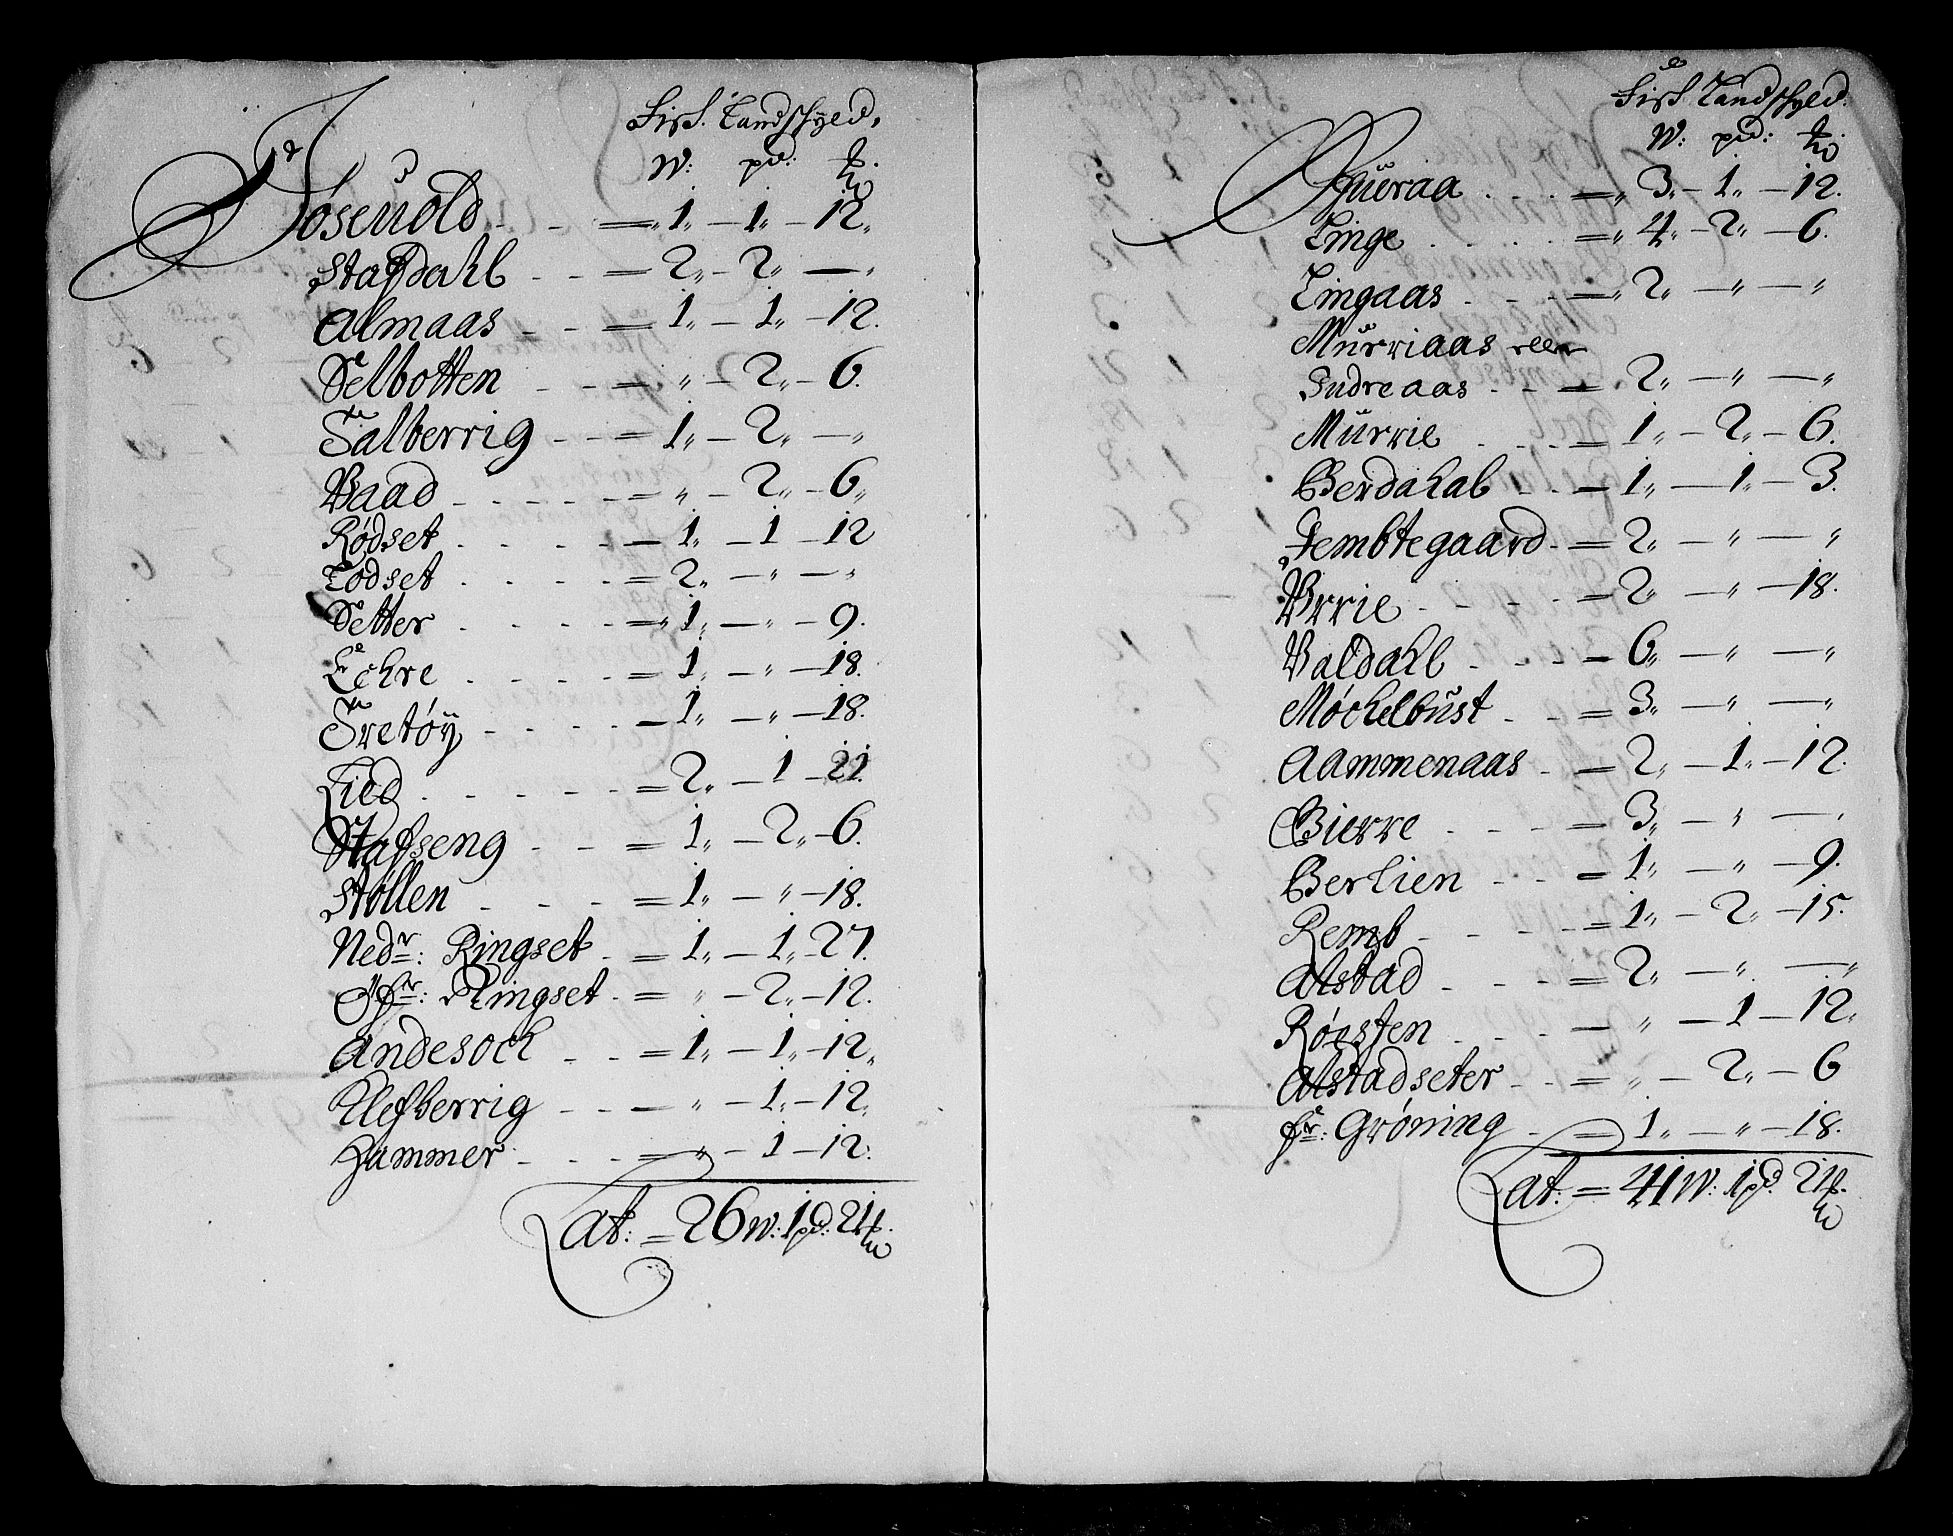 Fisk. Landschÿld,
W: pd: ℔.
Jøseuold - - =„ 1„ - 1„ - 12„
Stafdahl - - = 2„ - 2„ - „
Almaas - - = 1„ - 1„ - 12.
Selbotten - - = „ - 2„ - 6.
Salberrig - - = 1„ - 2„ - „
Vaad - - - - = „ - 2„ - 6„
Rødset - - - - 1„ - 1 - 12
Todset - - - - = 2„ - „ - „
Setter - - - =„ 1„ - „ - 9.
Lechre - - - = 1„ - „ - 18.
Tretøÿ - - - - 1„ - „ - 18.
Lied - - - - = 2„ - 1 - 21.
Stafseng - - = 1„ - 2„ - 6.
Støllen - - - = 1„ - „ - 18.
Nedr: Ringset - = 1„ - 1„ - 27.
Øfr: Ringset - = „ - 2„ - 12.
Andesock - - = 1„ - 1„ - 12„
Klefberrig - - - „ - 1„ - 12„
Hammer - - - = „ - 1 - 12.
Lat: = 26 W: 1 pd: 21 ℔.
Fisk Landschÿld.
W: pd: ℔.
Schueraa - - =„ 3„ - 1„ - 12.
Linge - - - =„ 4„ - 2„ - 6.
Lingaas - - - =„ 2„ - „ - „
Mürriaas eller
Indreaas - - - 2„ - „ - „
Mürrie - - = 1„ - 2„ - 6.
Berdahal - - - 1„ - 1„ - 3.
Tembtegaard - = 2„ - „ - „
Vrrie - - - = 2„ - „ - 18.
Valdahl - - - - 6„ - „ - „
Møchelbüst - - = 3„ - „ - „
Aammenaas - - 2„ - 1„ - 12.
Bierre - - - = 3„ - „ - „
Berlien - - = 1„ - „ - 9.
Remb - - - = 1„ - 2„ - 15.
Alstad - - - = 2„ - „ - „
Røesten - - - - „ - 1 - 12„
Alstadseter - - = „ - 2„ - 6
fr: Grøning - = 1„ - „ - 18.
Lat: = 41 W: 1 pd: 21 ℔.